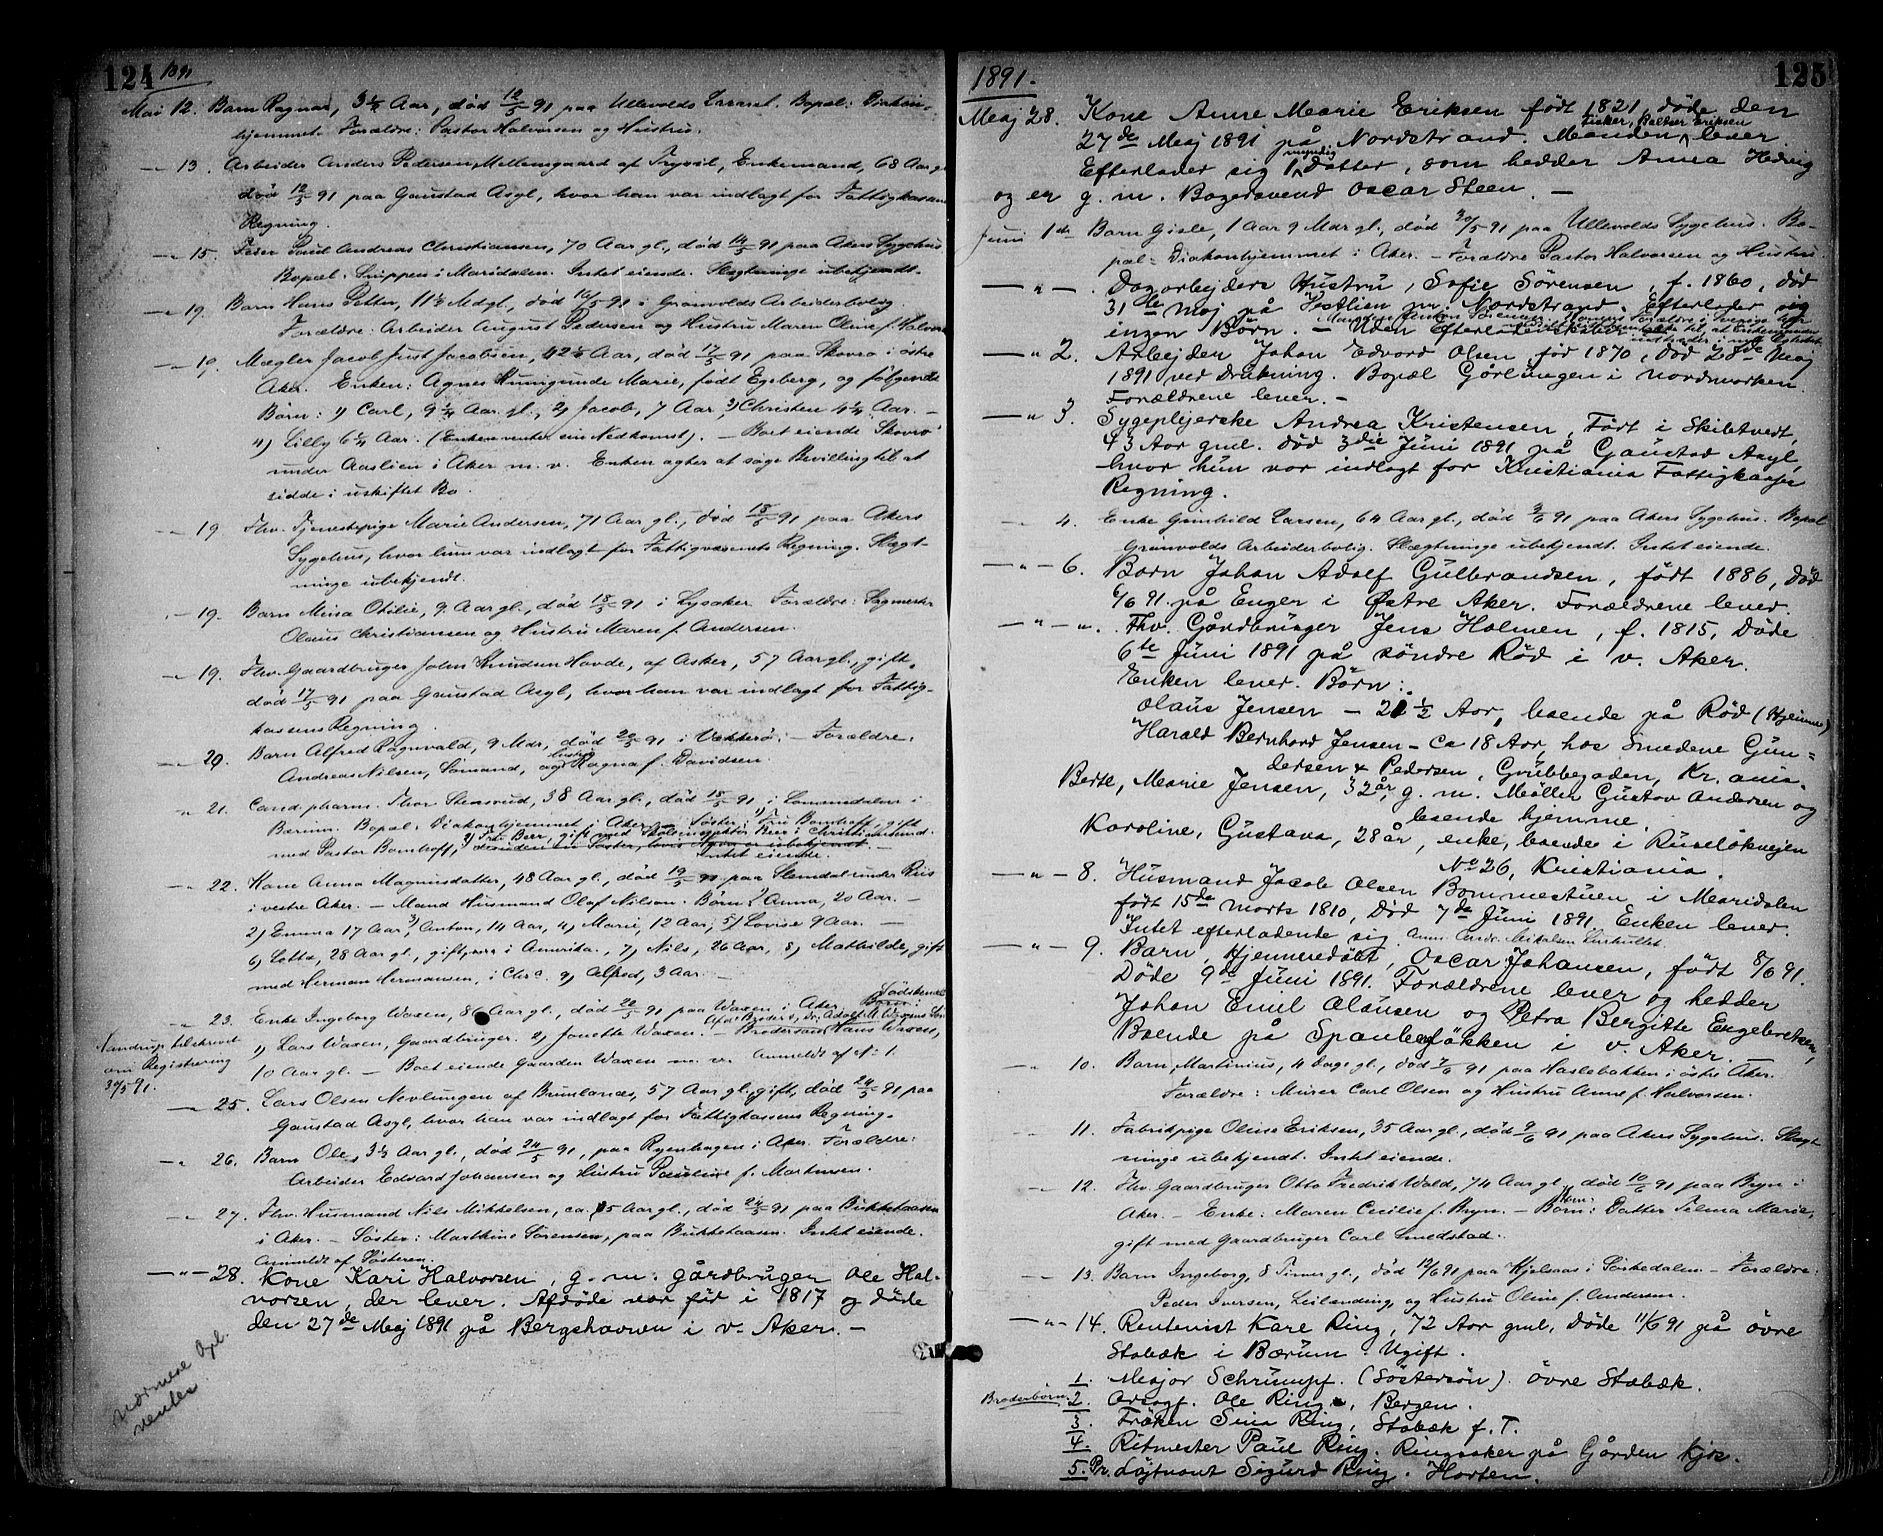 124 1891
Mai 12. Barn Ragnar, 3½ Aar, død 12/5 91 paa Ullevolds Lazaret. Bopæl: Diakon-
hjemmet. Forældre: Pastor Halvorsen og Hustru.
—"— 13. Arbeider Anders Pedersen Mellemgaard af Trysil, Enkemand, 68 Aar gl.
død 12/5 91 paa Gaustad Asyl, hvor han var indlagt for Fattigkassens
Regning.
—"— 15. Peder Paul Andreas Christiansen, 70 Aar gl., død 14/5 91 paa Akers Sygehus
Bopæl: Snippen i Maridalen. Intet eiende. Slægtninge ubekjendt.
—"— 19. Barn Hans Petter, 11½ Mdgl., død 16/5 91 i Grønvolds Arbeiderbolig
Forældre: Arbeider August Pedersen og Hustru Maren Oline f. Halvors
—"— 19. Mægler Jacob Just Jacobsen, 42½ Aar, død 17/5 91 paa Skovro i østre
Aker. Enken: Agnes Hunigunde Marie, født Egeberg, og følgende
Børn: 1) Carl, 9¼ Aar gl., 2) Jacob, 7 Aar 3) Christen 4¼ Aar. —
4) Lilly 6¼ Aar. (Enken venter sin Nedkomst). — Boet eiende Skovro
under Aaslien i Aker m. v. Enken agter at søge Bevilling til at
sidde i uskiftet Bo.
—"— 19 Fhv. Tjenestepige Marie Andersen, 71 Aar gl., død 18/5 91 paa Akers
Sygehus, hvor hun var indlagt for Fattigvæsenets Regning. Slægt-
ninge ubekjendt.
—"— 19. Barn Meisa Otilie, 9 Aar gl., død 18/5 91 i Lysaker. Forældre: Sagmester
Olaus Christiansen og Hustru Maren f. Andersen.
—"— 19. Fhv. Gaardbruger John Knudsen Hovde, af Asker, 57 Aar gl., gift,
død 17/5 91 paa Gaustad Asyl, hvor han var indlagt for Fattig-
kassens Regning.
—"— 20. Barn Alfred Ragnvald, 9 Mdr, død 20/5 91 i Vækkerø. — Forældre:
Andreas Nilsen, Sømand, og Hustru Ragna f. Davidsen.
" 21. Cand. pharm. Thor Stensrud, 38 Aar gl., død 18/5 91, i Lommedalen i
Bærum. Bopæl: Diakonhjemmet i Aker. — Søster: 1) Fru Bomhoff, gift
med Pastor Bomhoff, 2) Fru Beer, gift med Skoleinspektør Beer i Christianssund.
desuden en Søster, hvis Navn er ubekjendt. —
Intet eiende.
—"— 22. Kone Anna Magnusdatter, 48 Aar gl., død 19/5 91 paa Slemdal under Riis
i vestre Aker. — Mand Husmand Olof Nilson. Børn: 1) Anna, 20 Aar. —
2) Emma 17 Aar 3) Anton, 14 Aar, 4) Marie, 12 Aar, 5) Lovise 9 Aar. —
6) Lotta, 28 Aar gl., gift, i Amerika, 7) Nils, 26 Aar, 8) Mathilde, gift
med Herman Hermansen, i Chr.a 9) Alfred, 3 Aar. —
—"— 23. Enke Ingeborg Waxen, 8 Aar gl., død 20/5 91 paa Waxen i Aker. Børn:
1) Lars Waxen, Gaardbruger. 2) Jonette Waxen. — Brodersøn Hans Waxen,
10 Aar gl. — Boet eiende Gaarden Waxen m. v. Anmeldt af N: 1.
Nandrup tilskrevet
om Registrering
30/5 91.
—"— 25. Lars Olsen Nevlungen af Brunlanæs, 57 Aar gl., gift, død 24/5 91 paa
Gaustad Asyl, hvor han var indlagt for Fattigkassens Regning.
—"— 26. Barn Ole, 3½ Aar gl., død 24/5 91, paa Ryenhagen i Aker. Forældre:
Arbeider Edvard Johansen og Hustru Pauline f. Martinsen.
—"— 27. Fhv. Husmand Nils Mikkelsen, ca. 85 Aar gl., død 24/5 91 paa Bukkehaasen
i Aker. — Søster: Marthine Sørensen, paa Bukkehaasen. Intet eiende.
Anmeldt af Søsteren.
—"— 28. Kone Kari Halvorsen, g. m. gårdbruger Ole Hal-
vorsen, der lever. Afdøde var fød i 1817 og døde
den 27de Maj 1891 på Bergshavven i v. Aker. —
nærmere Opl.
ventes
1891. 125
Maj 28. Kone Anne Marie Eriksen født 1821, døde den
27de Maj 1891 på Nordstrand. Manden, Fisker, Baltser Eriksen lever
Efterlader sig 1 myndig Datter, som hedder Anna Hedvig
og er g. m. Bagersvend Oscar Steen. —
Juni 1ste Barn Gisle, 1 Aar 9 Mdr gl., død 30/5 91 paa Ullevolds Sygehus. Bo-
pæl: Diakonhjemmet i Aker. — Forældre Pastor Halvorsen og Hustru.
—"— Dagarbejders Hustru, Sofie Sörensen, f. 1860, död
31te Maj på Hastlien pr. Nordstrand. Efterlader sig
ingen Børn. —
—"— 2. Arbejder Johan Edvard Olsen, fød 1870, död 28de Maj
1891 ved drukning. Bopæl Görlungen i nordmarken
Forældrene lever. —
—"— 3. Sygeplejerske Andrea Kristensen, Født i Skibtvedt,
43 Aar gml. död 3die Juni 1891 på Gaustad Asyl,
hvor hun var indlagt for Kristiania Fattigkasses
Regning.
— 4. Enke Gunhild Larsen, 64 Aar gl., død 3/6 91 paa Akers Sygehus. Bopæl
Grønvolds Arbeiderbolig. Slægtninge ubekjendt. Intet eiende.
—"— 6. Barn Johan Adolf Gulbrandsen, født 1886, död
6/6 91 på Enger i Østre Aker. Forældrene lever.
—"—". Fhv. Gårdbruger Jens Holmen, f. 1815, Döde
6te Juni 1891 på söndre Röd i v. Aker.
Enken lever. Börn:
Olaus Jensen — 21½ Aar, boende på Röd (Hjemme)
Harald Bernhard Jensen — ca 18 Aar, hos Smedene Gun-
dersen & Pedersen, Grubbegaden, Kr.ania.
Berte, Marie Jensen, 32 år, g. m. Möller Gustav Andersen og
boende hjemme.
Karoline, Gustava, 28 år, enke, boende i Ruselökvejen
No 26, Kristiania.
—"— 8. Husmand Jacob Olsen Bommestuen i Maridalen
født 15de Marts 1810, Död 7de Juni 1891. Enken lever.
Intet efterladende sig.
—"— 9. Barn, Hjemmedöbt, Oscar Johansen, født 8/6 91.
Döde 9de Juni 1891. Forældrene lever og hedder
Johan Emil Olausen og Petra Bergitte Engebretsen,
Boende på Spanbeglökken i v. Aker. —
—"— 10. Barn, Martinius, 4 Dage gl., død 7/6 91 paa Haslebakken i østre Aker.
Forældre: Murer Carl Olsen og Hustru Anne f. Halvorsen.
—"— 11. Fabrikpige Oline Eriksen, 35 Aar gl., død 9/6 91 paa Akers Sygehus. Slægt-
ninge ubekjendt. Intet eiende.
—"— 12. Fhv. Gaardbruger Otto Fredrik Wold, 74 Aar gl., død 10/6 91 paa Bryn i
Aker. — Enke: Maren Cecilie f. Bryn. — Børn: Datter Tilma Marie,
gift med Gaardbruger Carl Smedstad.
—"— 13. Barn Ingeborg, 8 Timer gl., død 12/6 91 paa Hjelsaas i Sørkedalen. — Forældre:
Peder Iversen, Leilænding, og Hustru Oline f. Andersen.
—"— 14. Rentenist Kare Ring, 72 Aar gml., Döde 11/6 91 på övre
Stabæk i Bærum. Ugift.
1. Major Schrumpf. (Söstersön). övre Stabæk.
Broderbörn. 2. Ole Ring, Bergen.
3. Fröken Sina Ring, Stabæk f. T.
4. Ritmester Paul Ring. Ringsaker på Gården
5. Pr. Löjtnant Sigurd Ring. Horten.